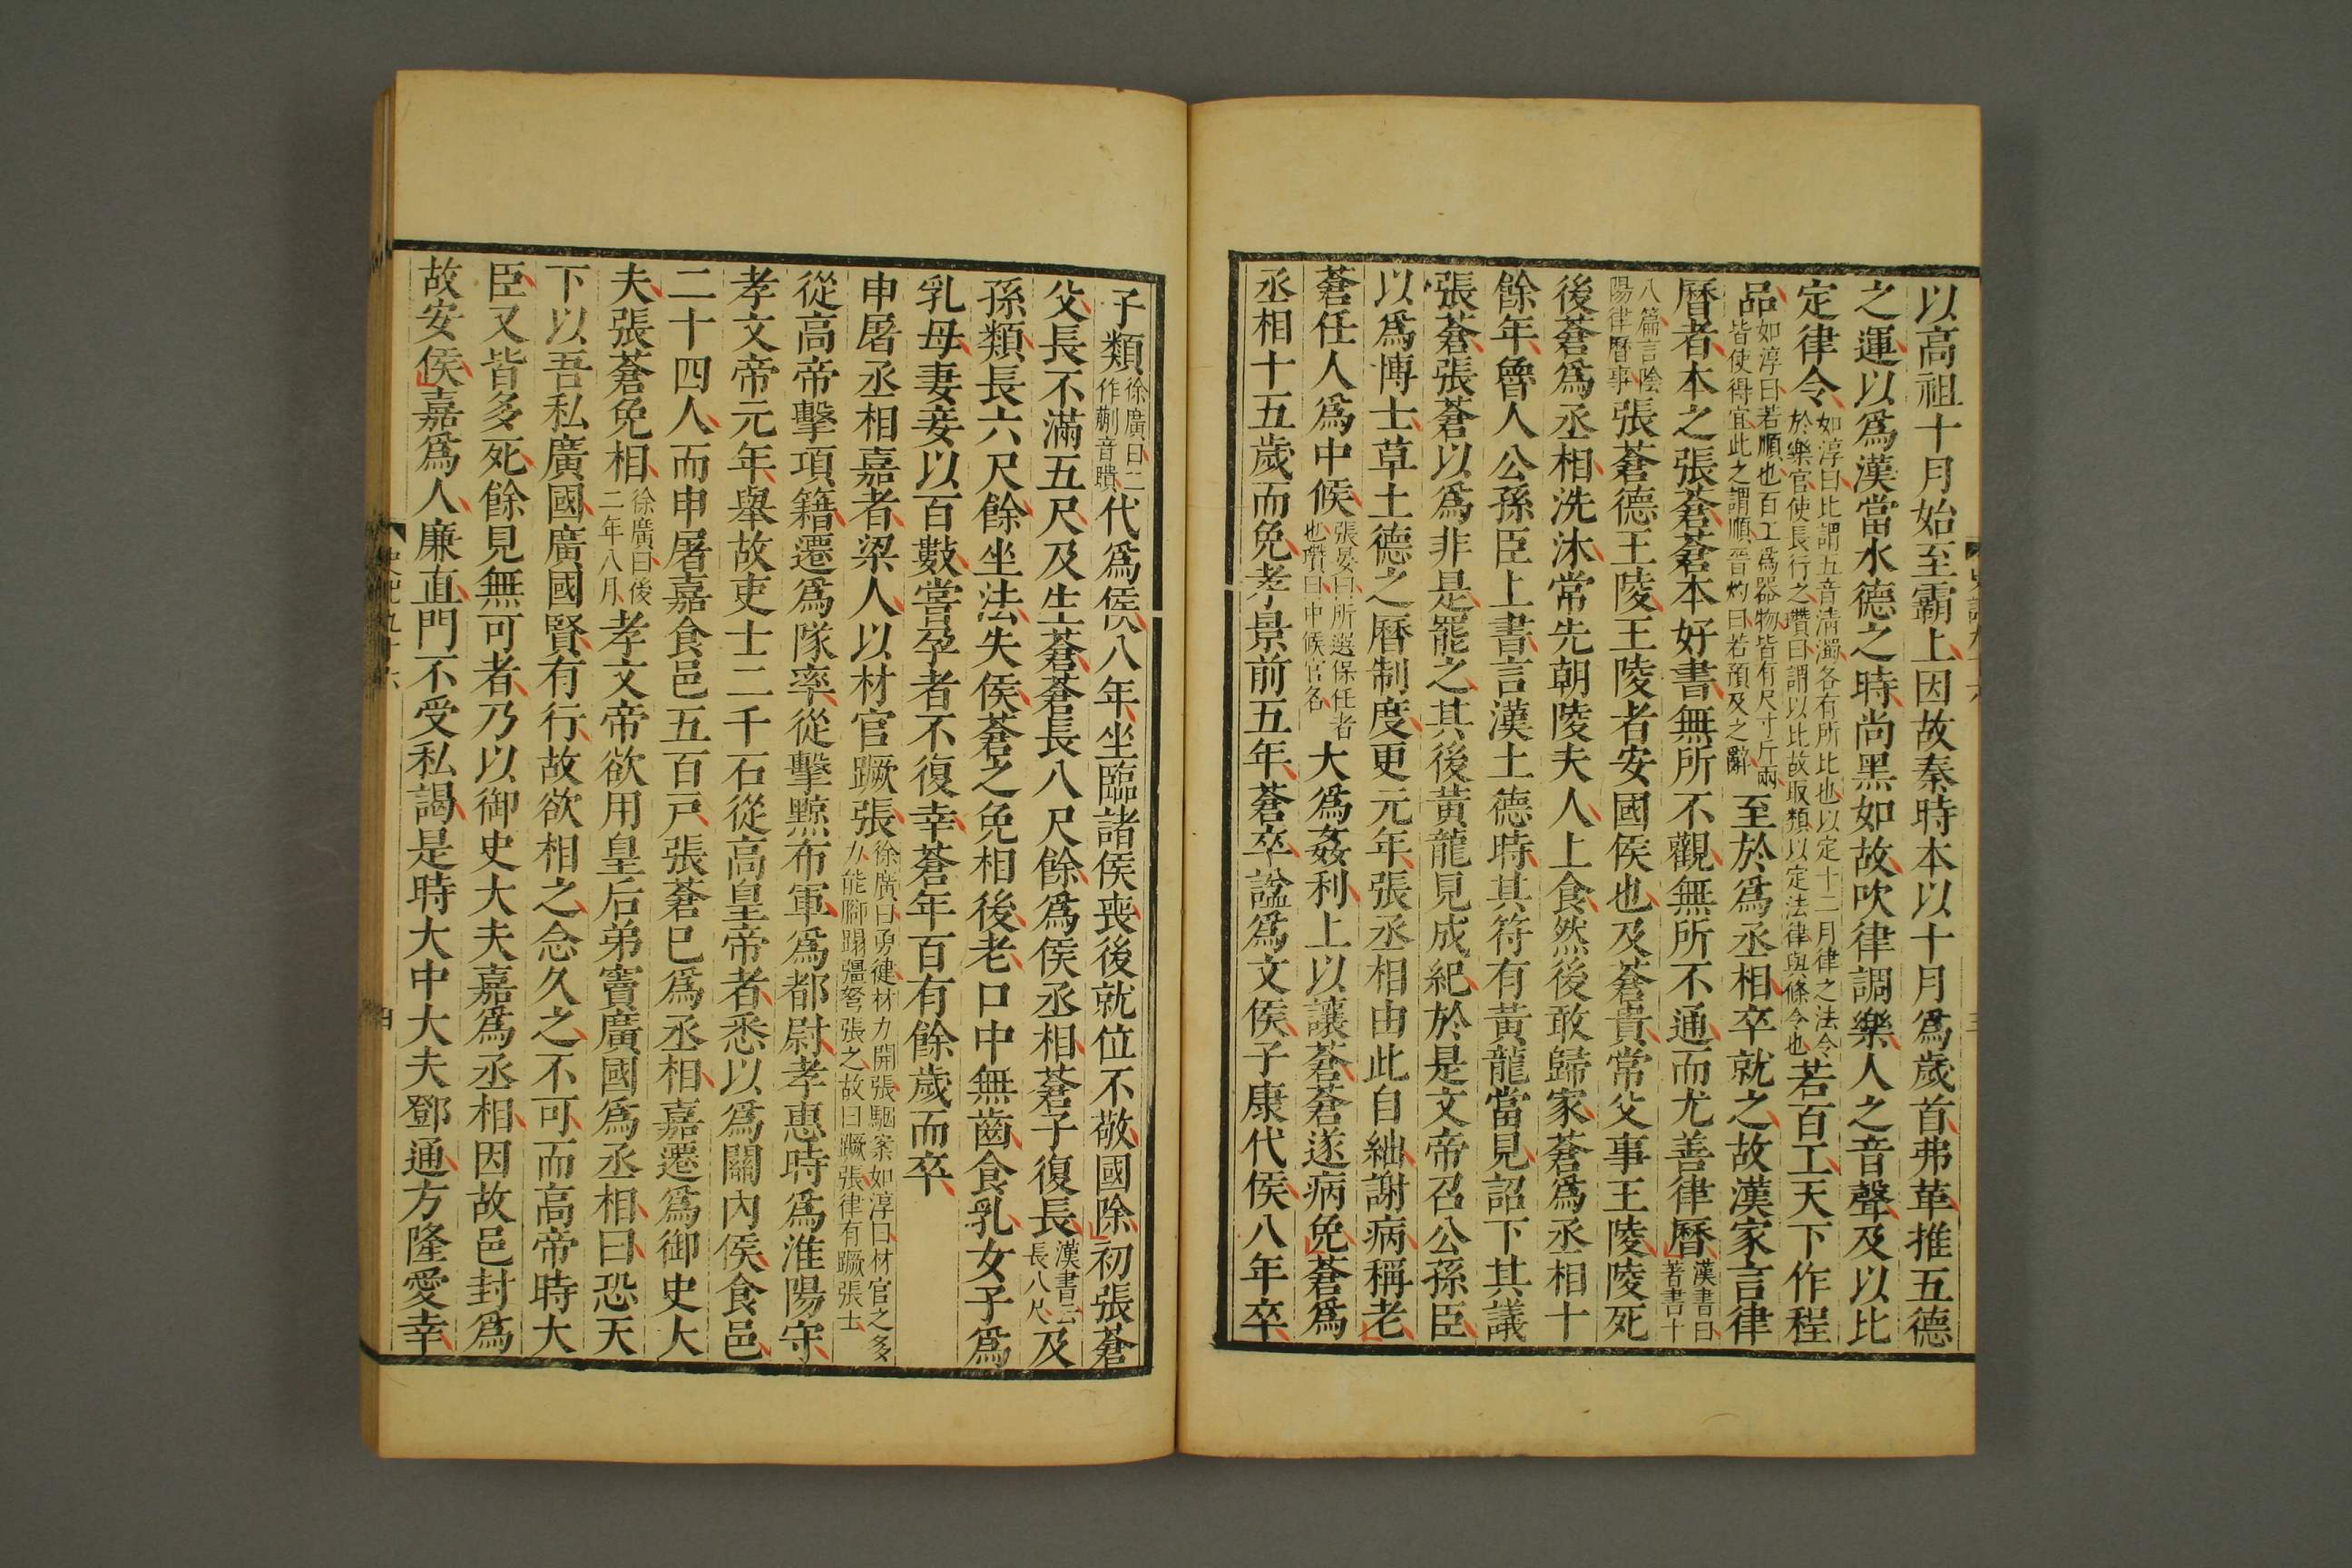 以高祖十月始至霸上因故秦時本以十月爲歲首弗革推五德
之運以爲漢當水德之時尚黑如故吹律調樂人之音聲及以比
定律令如淳曰比謂五音清濁各有所比也以定十二月律之法令於樂官使長行之瓚曰謂以比故取類以定法律與條令也若百工天下作程
品如淳曰若順也百工爲器物皆有尺寸斤兩皆使得宜此之謂順晉灼曰若預及之辭至於爲丞相卒就之故漢家言律
曆者本之張蒼蒼本好書無所不觀無所不通而尤善律曆漢書曰著書十
八篇言陰陽律曆事張蒼德王陵王陵者安國侯也及蒼貴常父事王陵陵死
後蒼爲丞相洗沐常先朝陵夫人上食然後敢歸家蒼爲丞相十
餘年魯人公孫臣上書言漢土德時其符有黃龍當見詔下其議
張蒼張蒼以爲非是罷之其後黃龍見成紀於是文帝召公孫臣
以爲博士草土德之曆制度更元年張丞相由此自絀謝病稱老
蒼任人爲中候張晏曰所選保任者也瓚曰中候官名大爲姦利上以讓蒼蒼遂病免蒼爲
丞相十五歲而免孝景前五年蒼卒諡爲文侯子康代侯八年卒
子類徐廣曰一作蒯音聵代爲侯八年坐臨諸侯喪後就位不敬國除初張蒼
父長不滿五尺及生蒼蒼長八尺餘爲侯丞相蒼子復長漢書云長八尺及
孫類長六尺餘坐法失侯蒼之免相後老口中無齒食乳女子爲
乳母妻妾以百數嘗孕者不復幸蒼年百有餘歲而卒
申屠丞相嘉者梁人以材官蹶張徐廣曰勇健材力開張駰案如淳曰材官之多力能腳蹋彊弩張之故曰蹶張律有蹶張士
從高帝擊項籍遷爲隊率從擊黥布軍爲都尉孝惠時爲淮陽守
孝文帝元年舉故吏士二千石從高皇帝者悉以爲關內侯食邑
二十四人而申屠嘉食邑五百戶張蒼已爲丞相嘉遷爲御史大
夫張蒼免相徐廣曰後二年八月孝文帝欲用皇后弟竇廣國爲丞相曰恐天
下以吾私廣國廣國賢有行故欲相之念久之不可而高帝時大
臣又皆多死餘見無可者乃以御史大夫嘉爲丞相因故邑封爲
故安侯嘉爲人廉直門不受私謁是時大中大夫鄧通方隆愛幸
史記九十六